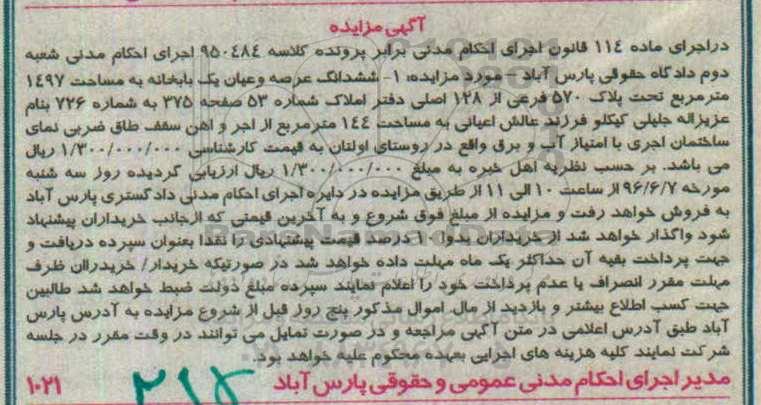 آگهی مزایده
دراجرای ماده ۱۱٤ قانون اجرای احکام مدنی برابر پرونده کلاسه ۹۵۰٤۸٤ اجرای احکام مدنی شعبه
دوم دادگاه حقوقی پارس آباد - مورد مزایده: ۱- ششدانگ عرصه وعیان یک بابخانه به مساحت ۱٤۹۷
مترمربع تحت پلاک ۵۷۰ فرعی از ۱۲۸ اصلی دفتر املاک شماره ۵۳ صفحه ۳۷۵ به شماره ۷۲۶ بنام
عزیزاله جلیلی کیکلو فرزند عالش اعیانی به مساحت ۱٤٤ مترمربع از اجر و اهن سقف طاق ضربی نمای
ساختمان اجری با امتیاز آب و برق واقع در روستای اولتان به قیمت کارشناسی ۱/۳۰۰/۰۰۰/۰۰۰ ریال
می باشد. بر حسب نظریه اهل خبره به مبلغ ۱/۳۰۰/۰۰۰/۰۰۰ ریال ارزیابی گردیده روز سه شنبه
مورخه ۹۶/۶/۷ از ساعت ۱۰ الی ۱۱ از طریق مزایده در دایره اجرای احکام مدنی دادگستری پارس آباد
به فروش خواهد رفت و مزایده از مبلغ فوق شروع و به آخرین قیمتی که ازجانب خریداران پیشنهاد
شود واگذار خواهد شد از خریداران بدوا ۱۰ درصد قیمت پیشنهادی را نقدا بعنوان سپرده دریافت و
جهت پرداخت بقیه آن حداکثر یک ماه مهلت داده خواهد شد در صورتیکه خریدار/ خریدران ظرف
مهلت مقرر انصراف یا عدم پرداخت خود را اعلام نمایند سپرده مبلغ دولت ضبط خواهد شد طالبین
جهت کسب اطلاع بیشتر و بازدید از مال اموال مذکور پنج روز قبل از شروع مزایده به آدرس پارس
آباد طبق آدرس اعلامی در متن آگهی مراجعه و در صورت تمایل می توانند در وقت مقرر در جلسه
شرکت نمایند کلیه هزینه های اجرایی بعهده محکوم علیه خواهد بود.
مدیر اجرای احکام مدنی عمومی و حقوقی پارس آباد ۱۰۲۱